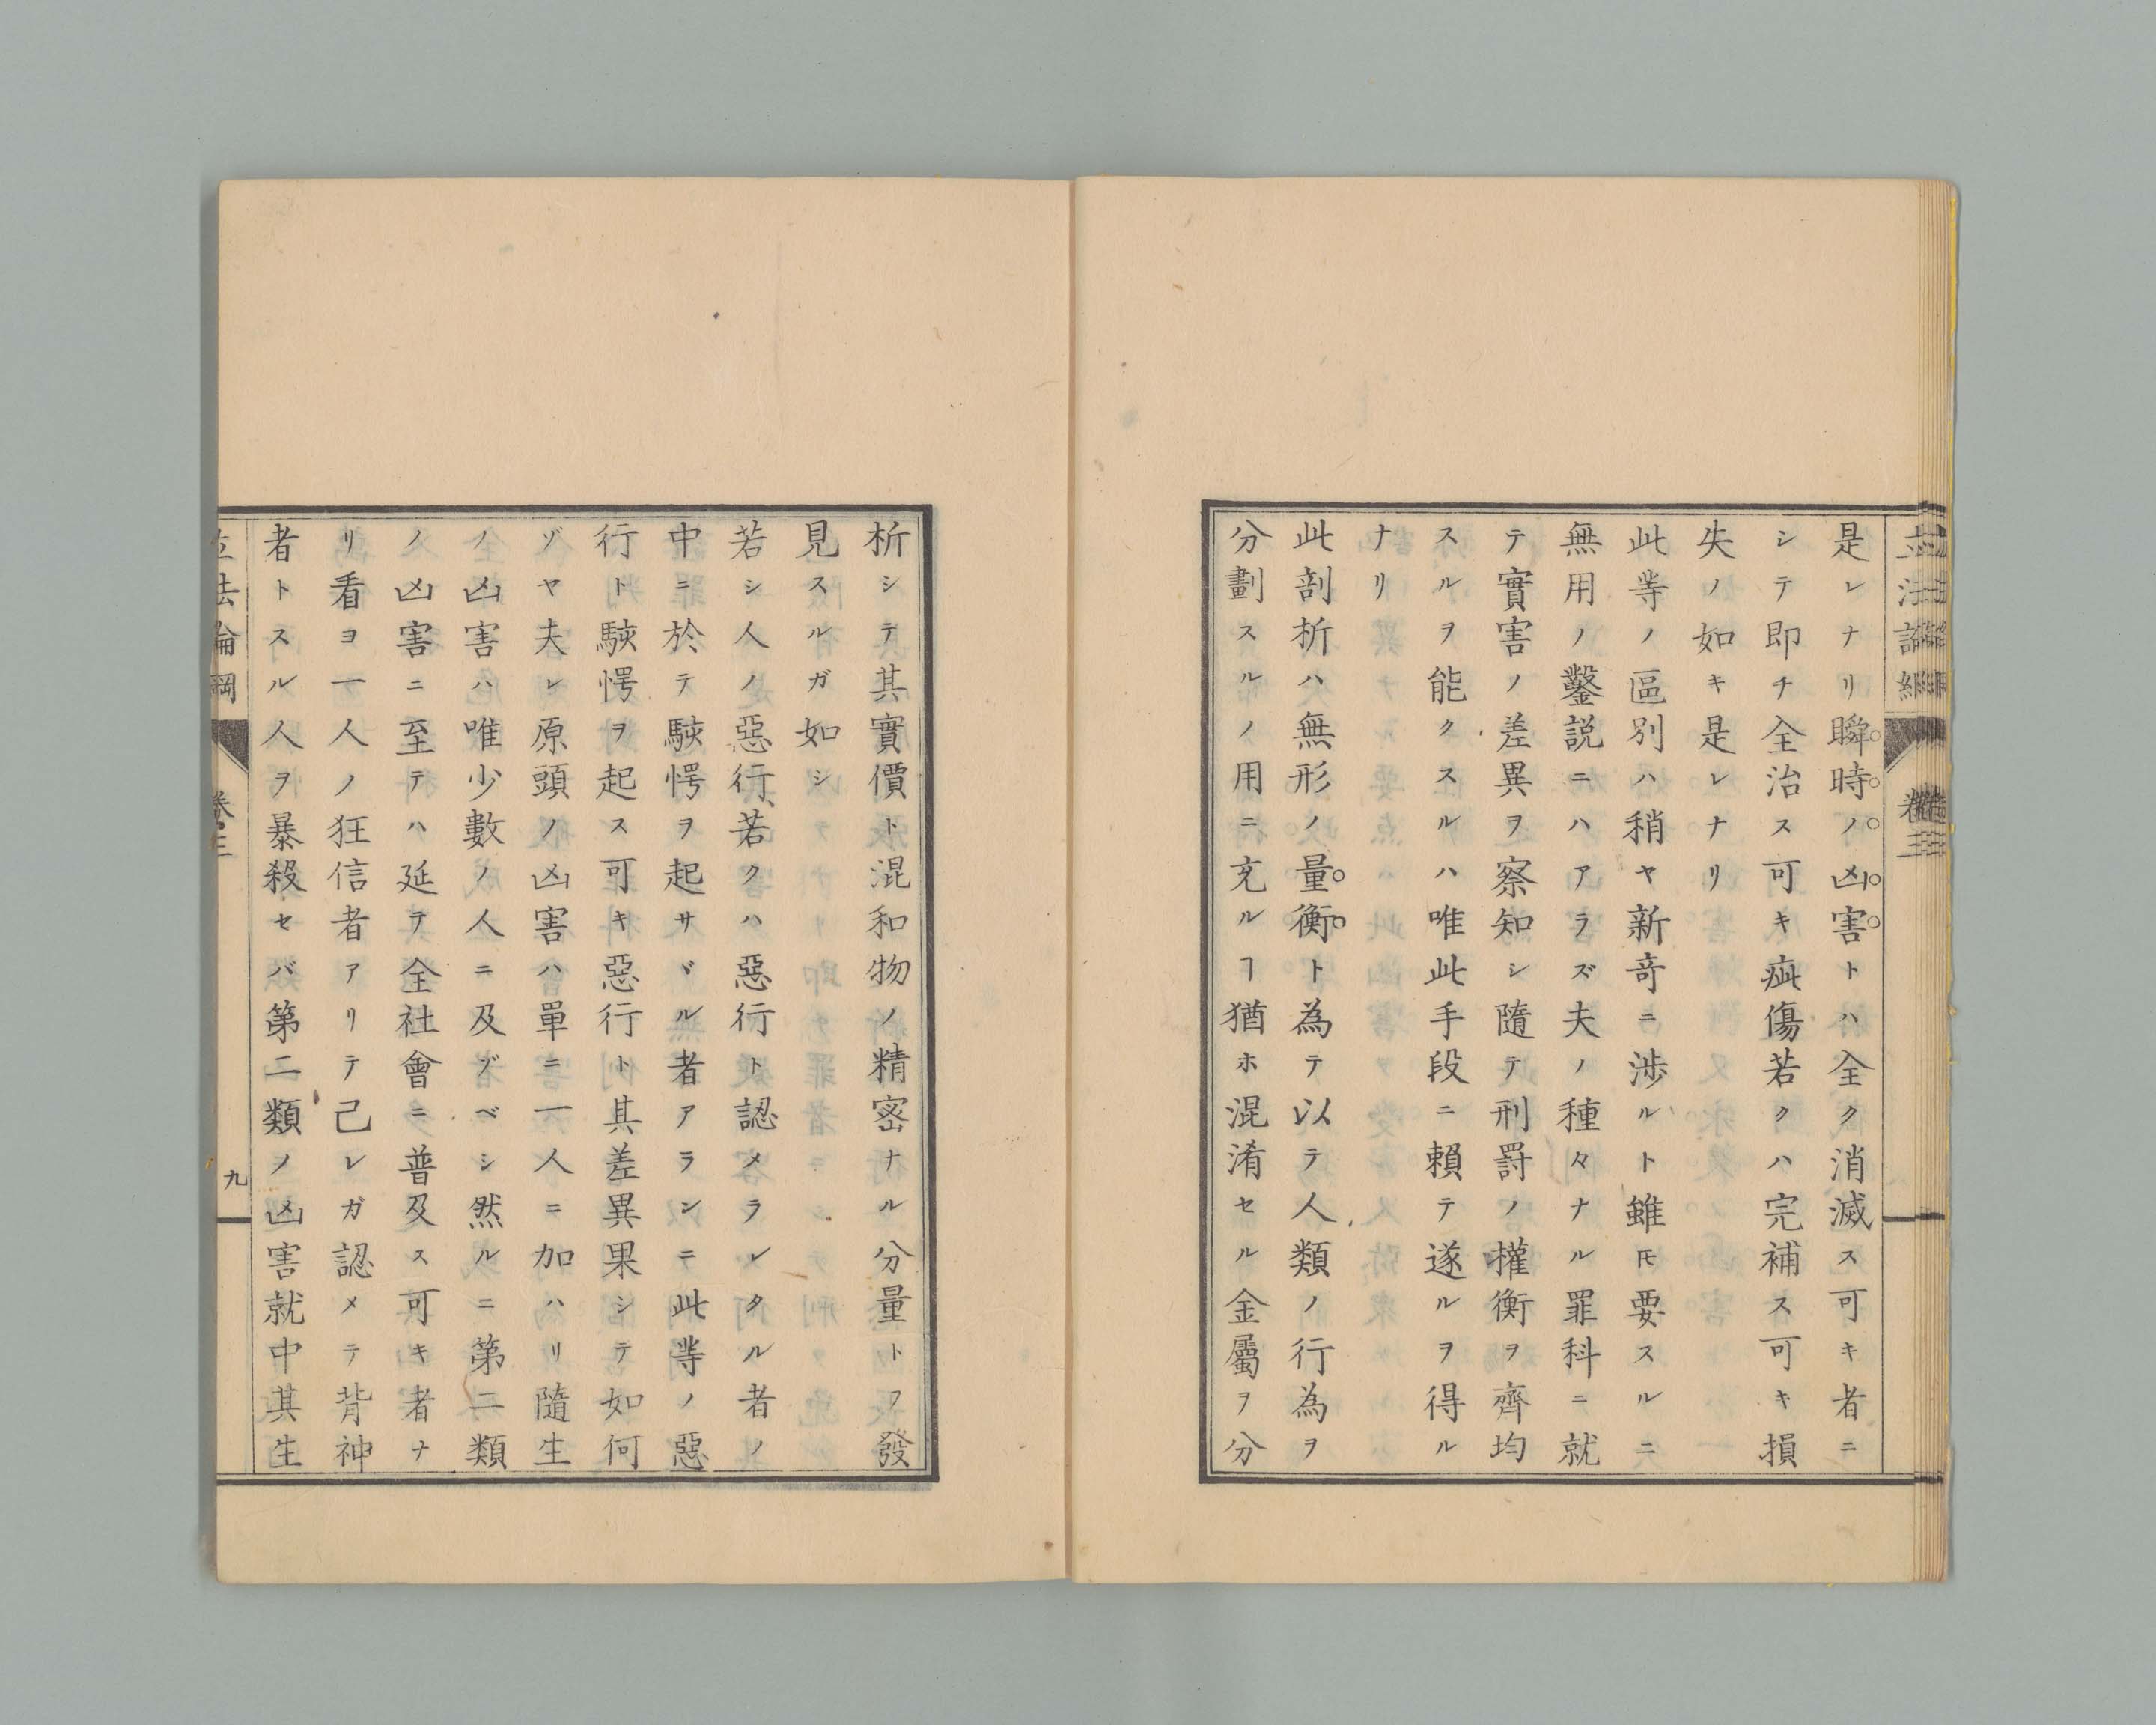 是レナリ瞬時ノ凶害トハ全ク消滅ス可キ者ニ
シテ即チ全治ス可キ疵傷若クハ完補ス可キ損
失ノ如キ是レナリ
此䓁ノ區別ハ稍ヤ新竒ニ渉ルト雖𪜈要スルニ
無用ノ鑿説ニハアラズ夫ノ種々ナル罪科ニ就
テ實害ノ差異ヲ察知シ隨テ刑罸ノ權衡ヲ齊均
スルヲ能クスルハ唯此手段ニ賴テ遂ルヲ得ル
ナリ
此剖析ハ無形ノ量衡ト為テ以テ人類ノ行為ヲ
分劃スルノ用ニ充ルヿ猶ホ混淆セル金屬ヲ分
析シテ其實價ト混和物ノ精密ナル分量トヲ發
見スルガ如シ
若シ人ノ惡行若クハ惡行ト認メラレタル者ノ
中ニ於テ駭愕ヲ起サヾル者アランニ此䓁ノ惡
行ト駭愕ヲ起ス可キ惡行ト其差異果シテ如何
ゾヤ夫レ原頭ノ凶害ハ單ニ一人ニ加ハリ隨生
ノ凶害ハ唯少數ノ人ニ及ブベシ然ルニ第二類
ノ凶害ニ至テハ延テ全社會ニ普及ス可キ者ナ
リ看ヨ一人ノ狂信者アリテ己レガ認メテ背神
者トスル人ヲ暴殺セバ第二類ノ凶害就中其生
立法論綱
卷三
九